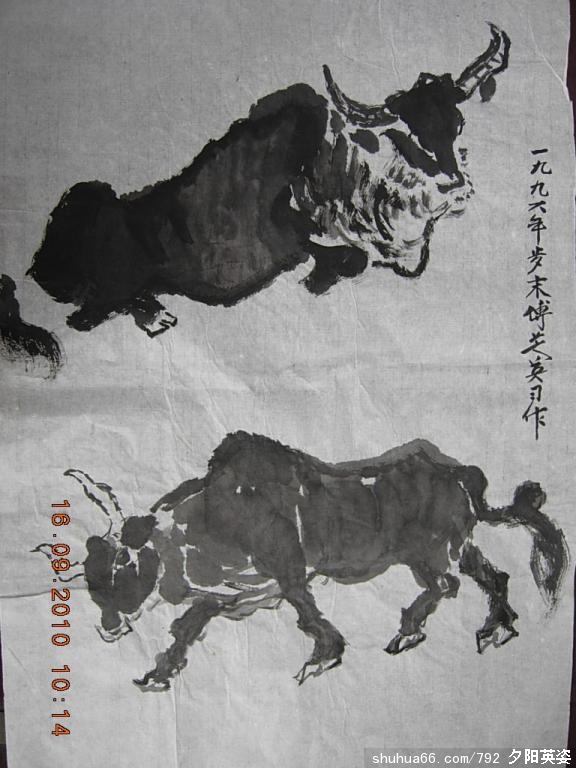 一九九六年岁末傅芝英习作
16.09.2010 10:14
shuhua66.com/792 夕阳英姿